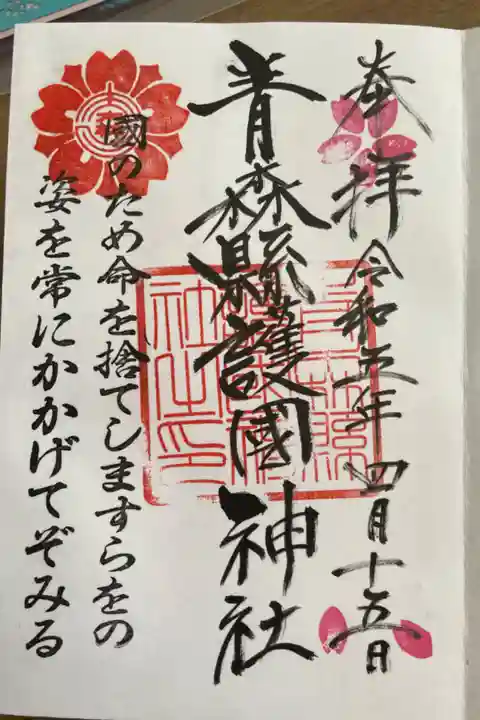 奉拝 令和五年四月十五日
青森縣護國神社
國のため命を捨てしますらをの
姿を常にかかげてぞみる